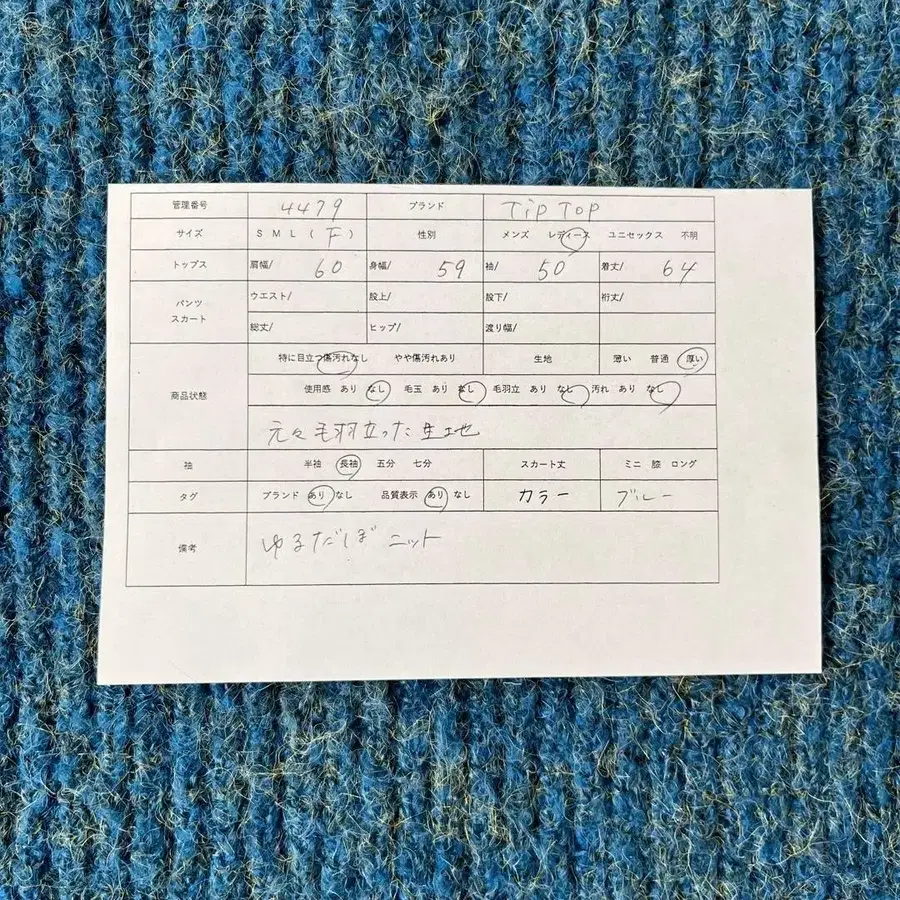 管理番号 4479 ブランド TiP TOP
サイズ S M L ( F ) 性別 メンズ レディース ユニセックス 不明
トップス 肩幅/ 60 身幅/ 59 袖/ 50 着丈/ 64
パンツ スカート ウエスト/ 股上/ 股下/ 裄丈/
総丈/ ヒップ/ 渡り幅/
特に目立つ傷汚れなし やや傷汚れあり 生地 薄い 普通 厚い
商品状態 使用感 あり なし 毛玉 あり なし 毛羽立 あり なし 汚れ あり なし
元々毛羽立った生地
袖 半袖 長袖 五分 七分 スカート丈 ミニ 膝 ロング
タグ ブランド あり なし 品質表示 あり なし カラー ブルー
備考 ゆるだぼニット